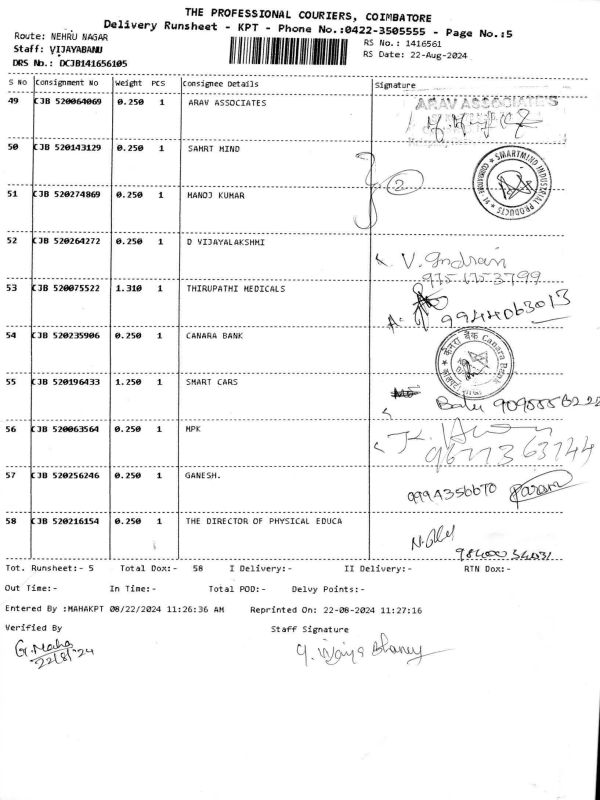 THE PROFESSIONAL COURIERS, COIMBATORE
Delivery Runsheet - KPT - Phone No.:0422-3505555 - Page No.:5
Route: NEHRU NAGAR
RS No.: 1416561
Staff: VIJAYABANU
RS Date: 22-Aug-2024
DRS No.: DCJB141656105
S No Consignment No Weight PCS Consignee Details Signature
49 CJB 520064069 0.250 1 ARAV ASSOCIATES
ARAV ASSOCIATES
50 CJB 520143129 0.250 1 SAMRT MIND
SMARTMIND INDUSTRIAL PRODUCTS
2
51 CJB 520274869 0.250 1 MANOJ KUMAR
52 CJB 520264272 0.250 1 D VIJAYALAKSHMI
V. Indran
9751753799
53 CJB 520075522 1.310 1 THIRUPATHI MEDICALS
9944063013
54 CJB 520235906 0.250 1 CANARA BANK
केनरा बैंक Canara Bank
55 CJB 520196433 1.250 1 SMART CARS
Balu
56 CJB 520063564 0.250 1 MPK
9677363744
57 CJB 520256246 0.250 1 GANESH.
9994356670
58 CJB 520216154 0.250 1 THE DIRECTOR OF PHYSICAL EDUCA
Tot. Runsheet:- 5 Total Dox:- 58 I Delivery:- II Delivery:- RTN Dox:-
Out Time:- In Time:- Total POD:- Delvy Points:-
Entered By :MAHAKPT 08/22/2024 11:26:36 AM Reprinted On: 22-08-2024 11:27:16
Verified By Staff Signature
G. Maha
22/8/24